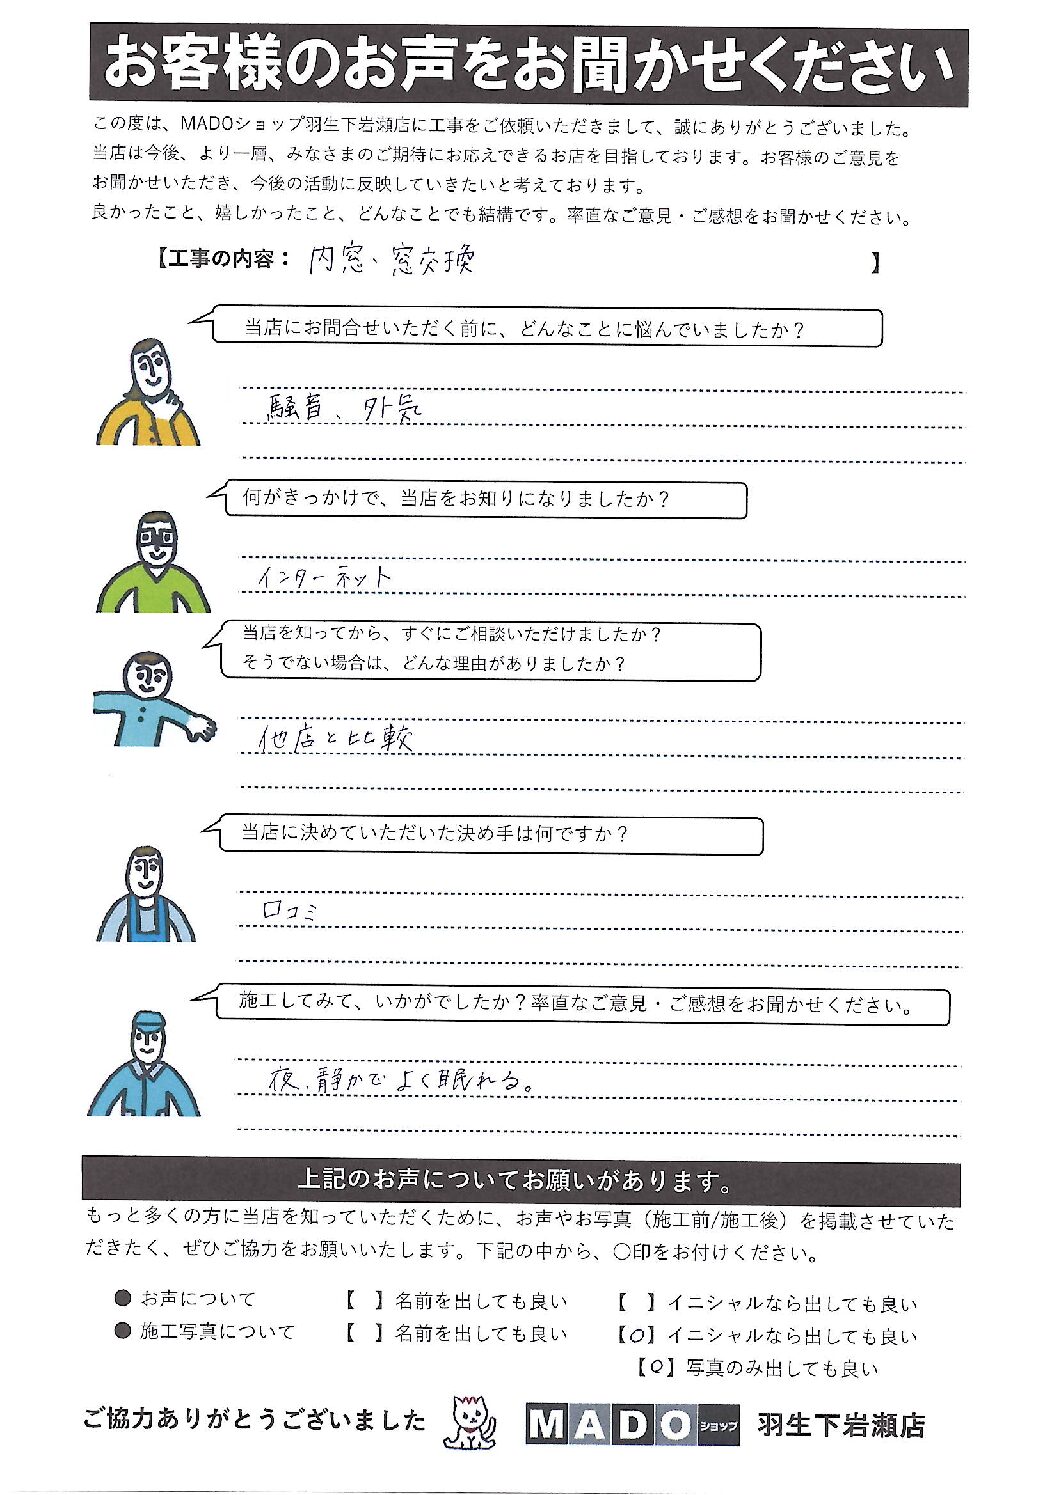 お客様のお声をお聞かせください
この度は、MADOショップ羽生下岩瀬店に工事をご依頼いただきまして、誠にありがとうございました。
当店は今後、より一層、みなさまのご期待にお応えできるお店を目指しております。お客様のご意見を
お聞かせいただき、今後の活動に反映していきたいと考えております。
良かったこと、嬉しかったこと、どんなことでも結構です。率直なご意見・ご感想をお聞かせください。
【工事の内容： 内窓、窓交換 】
当店にお問合せいただく前に、どんなことに悩んでいましたか？
騒音、外気
何がきっかけで、当店をお知りになりましたか？
インターネット
当店を知ってから、すぐにご相談いただけましたか？
そうでない場合は、どんな理由がありましたか？
他店と比較
当店に決めていただいた決め手は何ですか？
口コミ
施工してみて、いかがでしたか？率直なご意見・ご感想をお聞かせください。
夜、静かでよく眠れる。
上記のお声についてお願いがあります。
もっと多くの方に当店を知っていただくために、お声やお写真（施工前/施工後）を掲載させていた
だきたく、ぜひご協力をお願いいたします。下記の中から、〇印をお付けください。
● お声について 【 】名前を出しても良い 【 】イニシャルなら出しても良い
● 施工写真について 【 】名前を出しても良い 【〇】イニシャルなら出しても良い
【〇】写真のみ出しても良い
ご協力ありがとうございました MADOショップ 羽生下岩瀬店